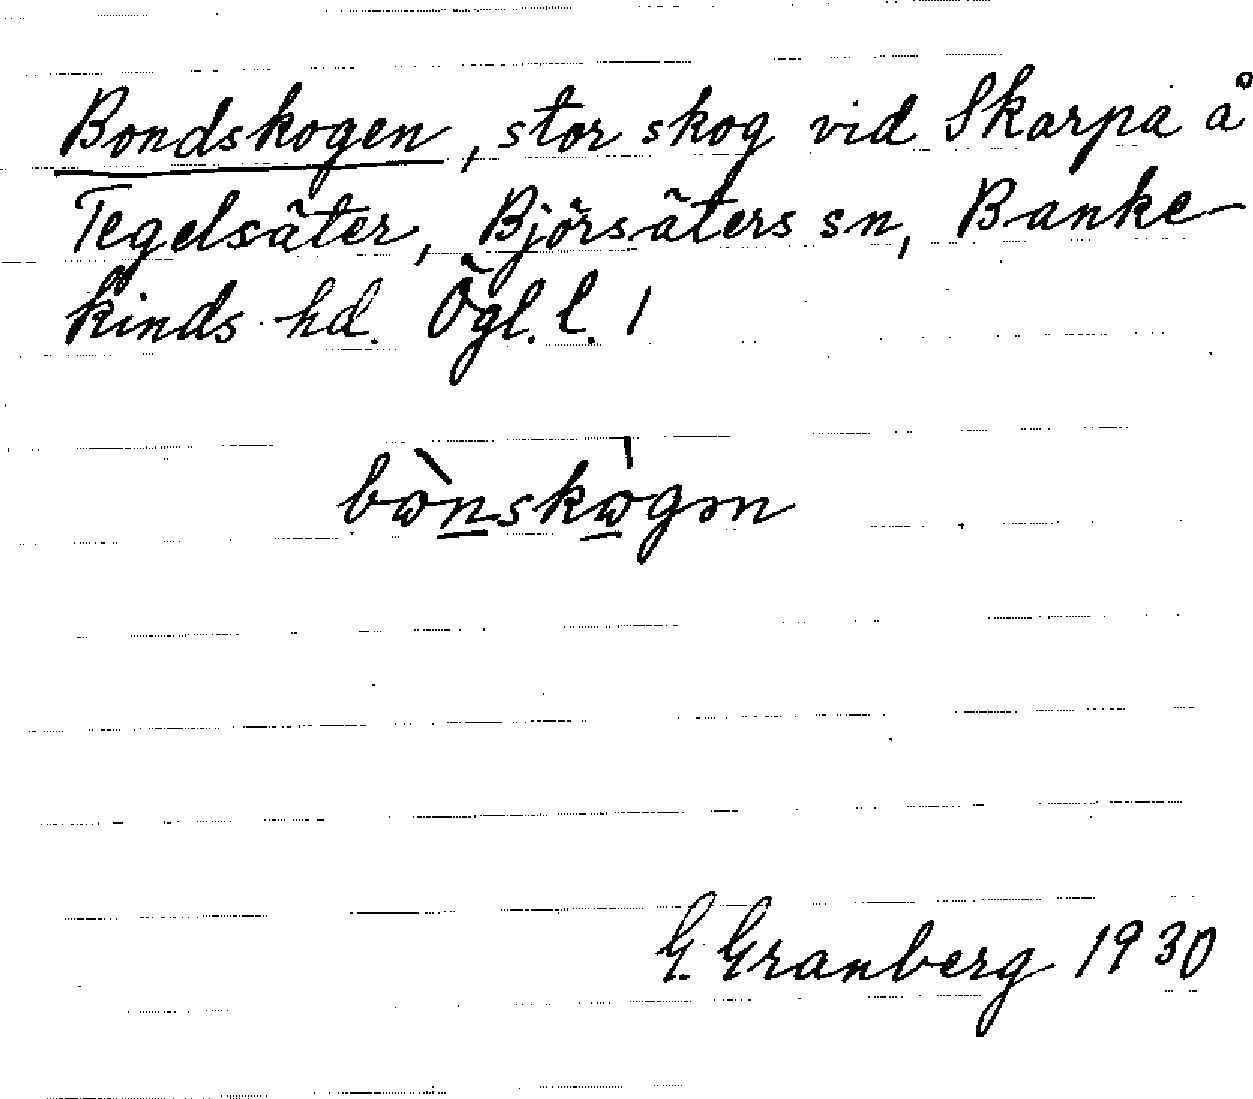 Bondskogen, stor skog vid Skarpa å
Tegelsäter, Björsäters sn, Banke-
kinds hd. Ögl. l. 1
bònskògən
G. Granberg 1930